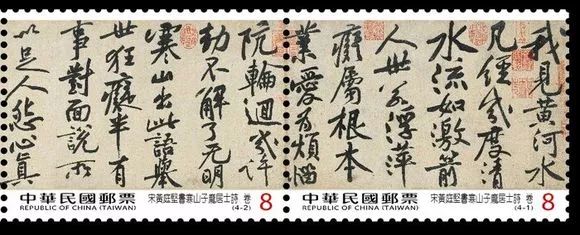 我見黃河水
凡經幾度清
水流如激箭
人世若浮萍
癡屬根本
業愛為煩惱
中華民國郵票
REPUBLIC OF CHINA (TAIWAN)
宋黃庭堅書寒山子龐居士詩 卷
(4-1)
8
阬輪迴幾許
劫不解了无明
寒山出此語舉
世狂癡半有
事對面說所
以足人怨心真
中華民國郵票
REPUBLIC OF CHINA (TAIWAN)
宋黃庭堅書寒山子龐居士詩 卷
(4-2)
8